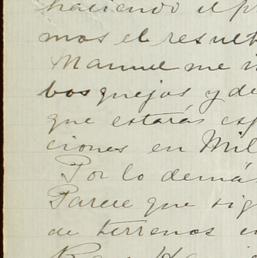 haciendo el p
mos el result
Manuel me
bosquejos y de
que estarás esp
ciones en Mil
Por lo demá
Parece que sig
de terrenos e